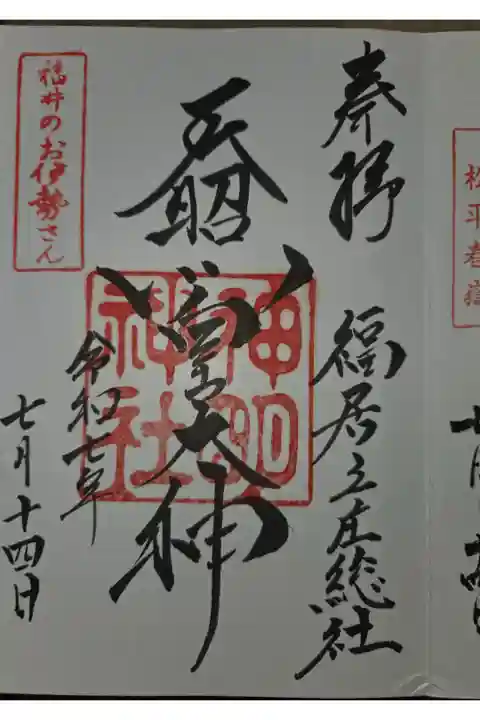 松平春
奉拝
福居之庄総社
天照皇大神
神明神社
令和七年
七月十四日
福井のお伊勢さん